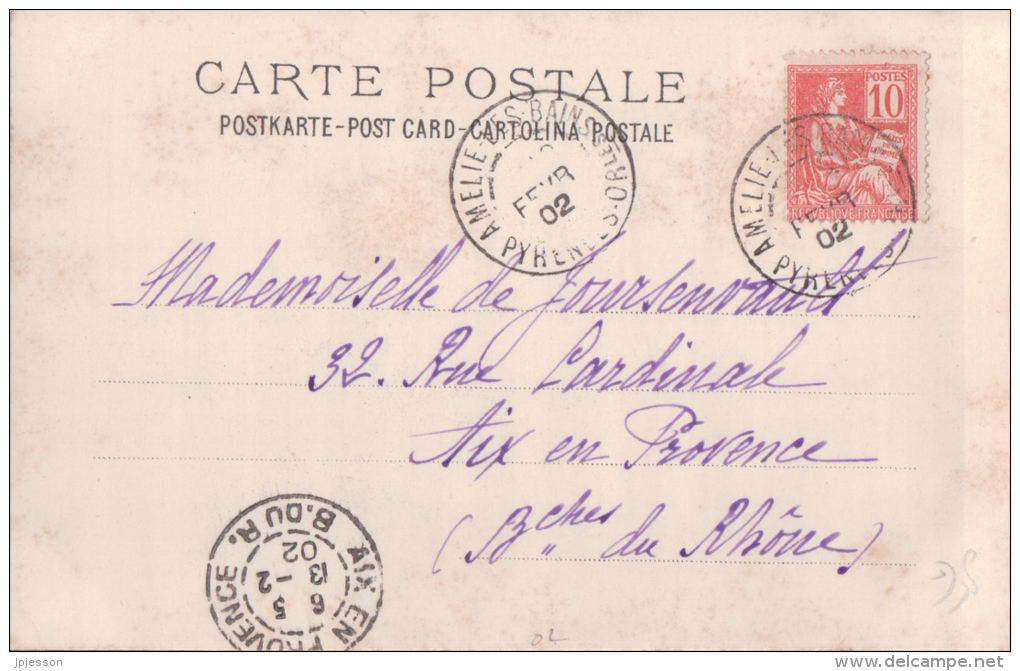 CARTE POSTALE
POSTKARTE-POST CARD-CARTOLINA POSTALE
POSTES
10
REPUBLIQUE FRANÇAISE
AMELIE-LES-BAINS
PYRENEES-ORLES
FEVR
02
AMELIE-LES-BAINS
PYRENEES
FEVR
02
Mademoiselle de
32. Rue Cardinale
Aix en Provence
(Bches du Rhône)
AIX EN PROVENCE
B. DU R.
5-2
6 13
02
02
jpjesson
delcampe.net